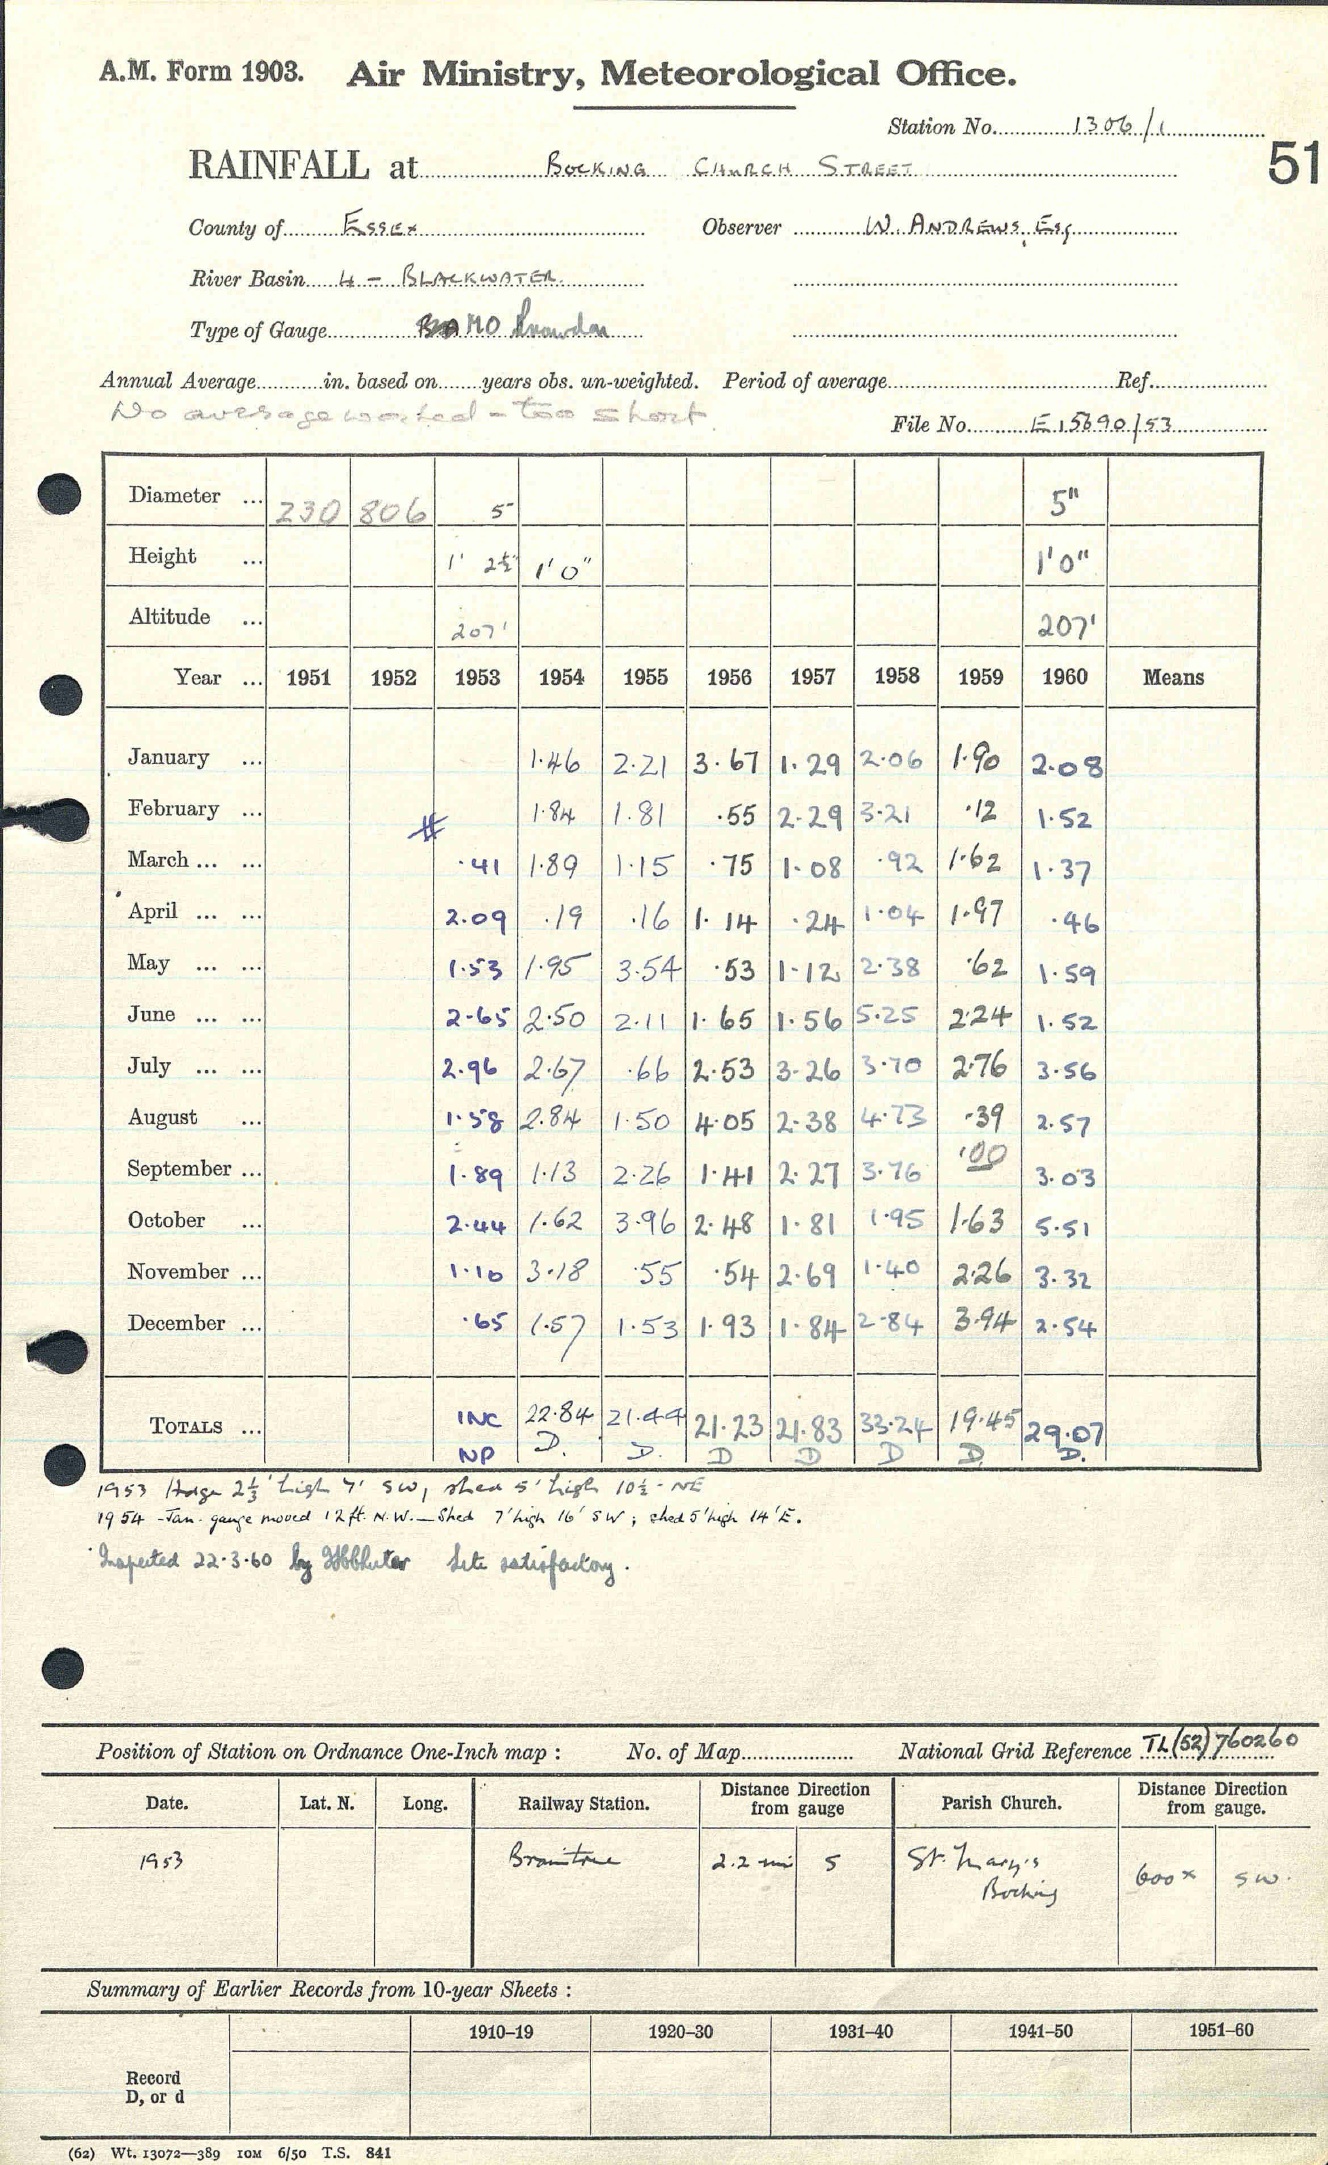 A.M. Form 1903. Air Ministry, Meteorological Office.
Station No. 1306/1
51
RAINFALL at BOCKING CHURCH STREET
County of ESSEX Observer W. ANDREWS, Esq
River Basin 4 – BLACKWATER
Type of Gauge MO Snowdon
Annual Average in. based on years obs. un-weighted. Period of average Ref.
No average worked – too short
File No. E15690/53
Diameter ... 230 806 5 5"
Height ... 1' 2½" 1'0" 1'0"
Altitude ... 207' 207'
Year ... 1951 1952 1953 1954 1955 1956 1957 1958 1959 1960 Means
January ... 1.46 2.21 3.67 1.29 2.06 1.90 2.08
February ... # 1.84 1.81 .55 2.29 3.21 .12 1.52
March ... ... .41 1.89 1.15 .75 1.08 .92 1.62 1.37
April ... ... 2.09 .19 .16 1.14 .24 1.04 1.97 .46
May ... ... 1.53 1.95 3.54 .53 1.12 2.38 .62 1.59
June ... ... 2.65 2.50 2.11 1.65 1.56 5.25 2.24 1.52
July ... ... 2.96 2.67 .66 2.53 3.26 3.70 2.76 3.56
August ... 1.58 2.84 1.50 4.05 2.38 4.73 .39 2.57
September ... 1.89 1.13 2.26 1.41 2.27 3.76 .00 3.03
October ... 2.44 1.62 3.96 2.48 1.81 1.95 1.63 5.51
November ... 1.10 3.18 .55 .54 2.69 1.40 2.26 3.32
December ... .65 1.57 1.53 1.93 1.84 2.84 3.94 2.54
TOTALS ... INC 22.84 21.44 21.23 21.83 33.24 19.45 29.07
NP D. D. D D D D. D.
1953 Hedge 2⅓' high 7' SW, shed 5' high 10½ - NE
1954 - Jan. gauge moved 12 ft. N.W. – Shed 7' high 16' SW; shed 5' high 14' E.
Inspected 22.3.60 by Site satisfactory.
Position of Station on Ordnance One-Inch map : No. of Map National Grid Reference TL(52)760260
Date. Lat. N. Long. Railway Station. Distance from gauge Direction Parish Church. Distance from gauge. Direction
1953 Braintree 2.2 mi S St. Mary's Bocking 600x SW.
Summary of Earlier Records from 10-year Sheets :
1910–19 1920–30 1931–40 1941–50 1951–60
Record
D, or d
(62) Wt. 13072—389 10M 6/50 T.S. 841